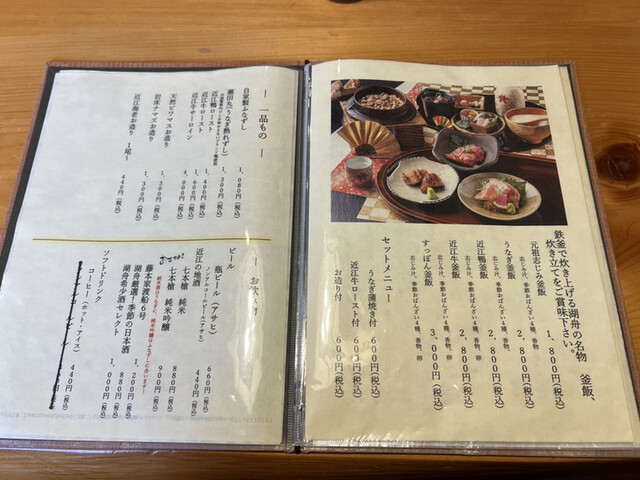 鉄釜で炊き上げる湖舟の名物 釜飯、
炊き立てをご賞味下さい。
元祖志じみ釜飯 1,800円(税込)
志じみ汁、季節おばんざい4種、香物、卵
うなぎ釜飯 2,800円(税込)
志じみ汁、季節おばんざい4種、香物
近江鴨釜飯 2,800円(税込)
志じみ汁、季節おばんざい4種、香物、卵
近江牛釜飯 2,800円(税込)
志じみ汁、季節おばんざい4種、香物、卵
すっぽん釜飯 3,000円(税込)
志じみ汁、季節おばんざい4種、香物、卵
セットメニュー
うなぎ蒲焼き付 600円(税込)
近江牛ロースト付 600円(税込)
お造り付 600円(税込)
― 一品もの ―
自家製ふなずし 1,080円(税込)
瀬田丸(うなぎ熟れずし) 1,300円(税込)
近江鴨ロースト 1,400円(税込)
近江牛ロースト 1,600円(税込)
近江牛サーロイン 4,000円(税込)
天然ビワマスお造り 1,300円(税込)
岩床ナマズお造り 1,300円(税込)
近江海老お造り 1尾～ 440円(税込)
― お飲み
ビール
瓶ビール(アサヒ) 660円(税込)
ノンアルコールビール(アサヒ) 440円(税込)
近江の地酒
七本槍 純米 880円(税込)
おすすめ!
七本槍 純米吟醸 900円(税込)
純米酒はうなぎと、純米吟醸はふなずしに合います!
藤本家渡船6号 1,200円(税込)
湖舟厳選!季節の日本酒 880円(税込)
湖舟希少酒セレクト 1,000円(税込)
ソフトドリンク
コーヒー(ホット・アイス) 440円(税込)